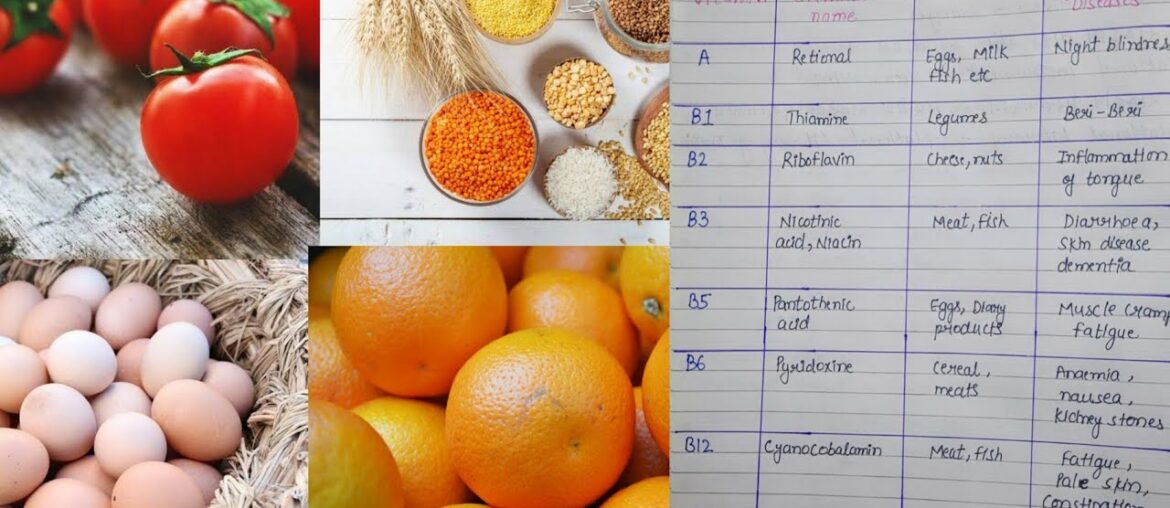 name Diseases
A Retional Eggs, Milk Night blindnes
fish etc
B1 Thiamine Legumes Beri-Beri
B2 Riboflavin Cheese, nuts Inflammation
of tongue
B3 Nicotinic Meat, fish Diarrhoea,
acid, Niacin skin disease
dementia
B5 Pantothenic Eggs, Diary Muscle cramp
acid products fatigue
B6 Pyridoxine Cereal, Anaemia,
meats nausea,
kidney stones
B12 Cyanocobalamin Meat, fish Fatigue,
Pale skin,